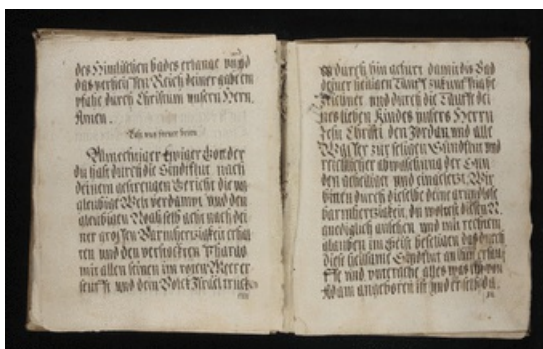 des Himlischen bades erlange vnnd
das verheissen Reich deiner gabe em
pfahe durch Christum vnsern Hern.
Amen.
Last vns ferner beten
Almechtiger Ewiger Gott der
du hast durch die Sündflut nach
deinem gestrengen Gericht die vn
gleubige Welt verdampt vnd den
gleubigen Noah selb acht nach dei
ner grossen Barmhertzigkeit erhal
ten vnd den verstockten Pharao
mit allen seinen im roten Meer er
seufft vnd dein Volck Israel trucken
durch hin gefurt damit dis Bad
deiner heiligen Tauff zukunfftig be
zeichnet vnd durch die Tauffe dei
nes lieben Kindes vnsers Herrn
Jesu Christi den Jordan vnd alle
Wasser zur seligen Sündflut vnd
reichlicher abwaschung der Sun
den geheiliget vnd eingesetzt Wir
bitten durch dieselbe deine grundlose
barmhertzigkeit du wollest diesen N.
gnediglich ansehen vnd mit rechtem
glauben im Geist beseligen das durch
diese heilsame Sündflut an ihm erseuf
ffe vnd vntergehe alles was ihm von
Adam angeboren ist